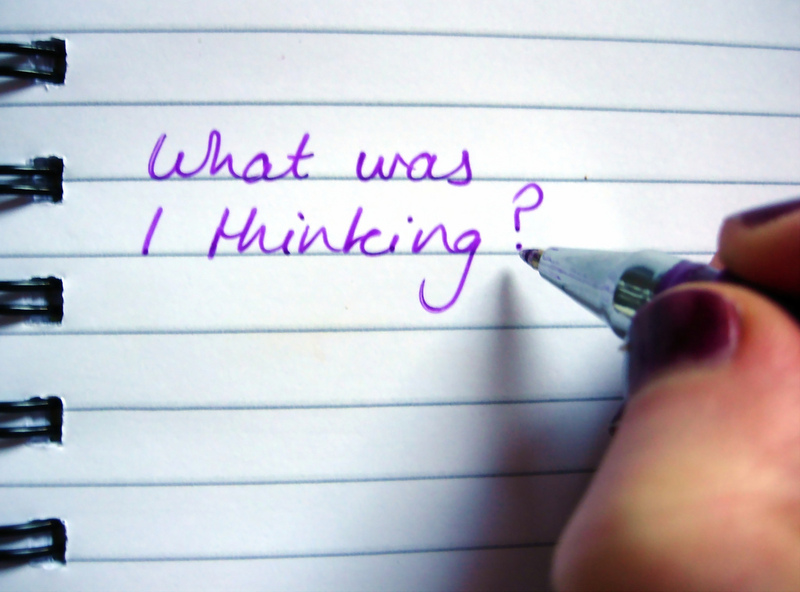 What was
I thinking?